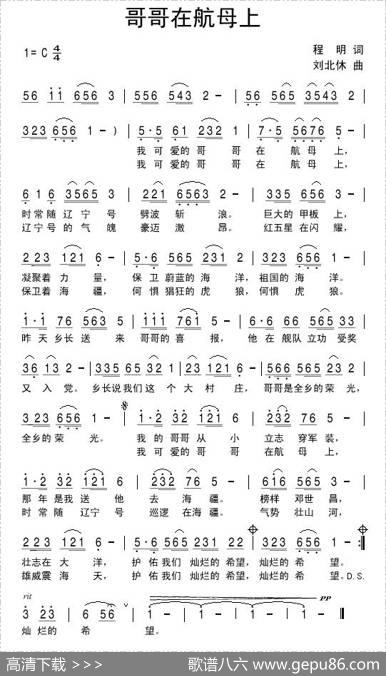 哥哥在航母上
1=C 4/4
程 明 词
刘北休 曲
56 1 1 656 3 | 556 543 2 - | 56 565 3543 2 |
323 656 1 - ) | 5·5 61 232 1 | 7·5 5676 5 - |
我可 爱的 哥 哥 在 航 母 上,
我可 爱的 哥 哥 在 航 母 上,
6 1 6 3565 3 | 221 6563 2 - | 335 656 3 - |
时常随 辽宁 号 劈波 斩 浪。 巨大的 甲板 上,
辽宁号的 气 魄 豪迈 激 昂。 红五星 在闪 耀,
223 121 6 - |
凝聚着 力 量, 保 卫 蔚蓝的 海 洋, 祖国的 海 洋。
保卫着 海 疆, 何 惧 猖狂的 虎 狼, 何惧 虎 狼。
1·1 76 563 5 | 111 761 5 - | 6·6 66 565 33 |
昨 天 乡长 送 来 哥哥的 喜 报, 他 在 舰队 立功 受奖
36 13 2 - | 335 65 32 1 | 23 121 6 - |
又 入 党。 乡长说 我们 这 个 大 村 庄, 哥哥 是全乡的 荣 光,
323 656 1 - | 1·2 32 121 6 | 232 76 5 - |
全乡的 荣 光。 我 的 哥哥 从 小 立志 穿军 装,
我 可 爱的 哥 哥 在 航 母 上,
那 年 是我 送 他 去 海 疆。 榜样 邓世 昌,
时 常 随 辽宁 号 巡逻 在海 疆。 气势 壮山 河,
壮志在 大 洋, 护 佑 我们 灿烂的 希望, 灿烂的 希 望。
雄威震 海 天, 护 佑 我们 灿烂的 希望, 灿烂的 希 望。D.S.
rit
pp
3 23 | 6 56 | 1 - - - | 1 - - - | 1 - - - ‖
灿 烂的 希 望。
高清下载 >>>
歌谱八六 www.gepu86.com